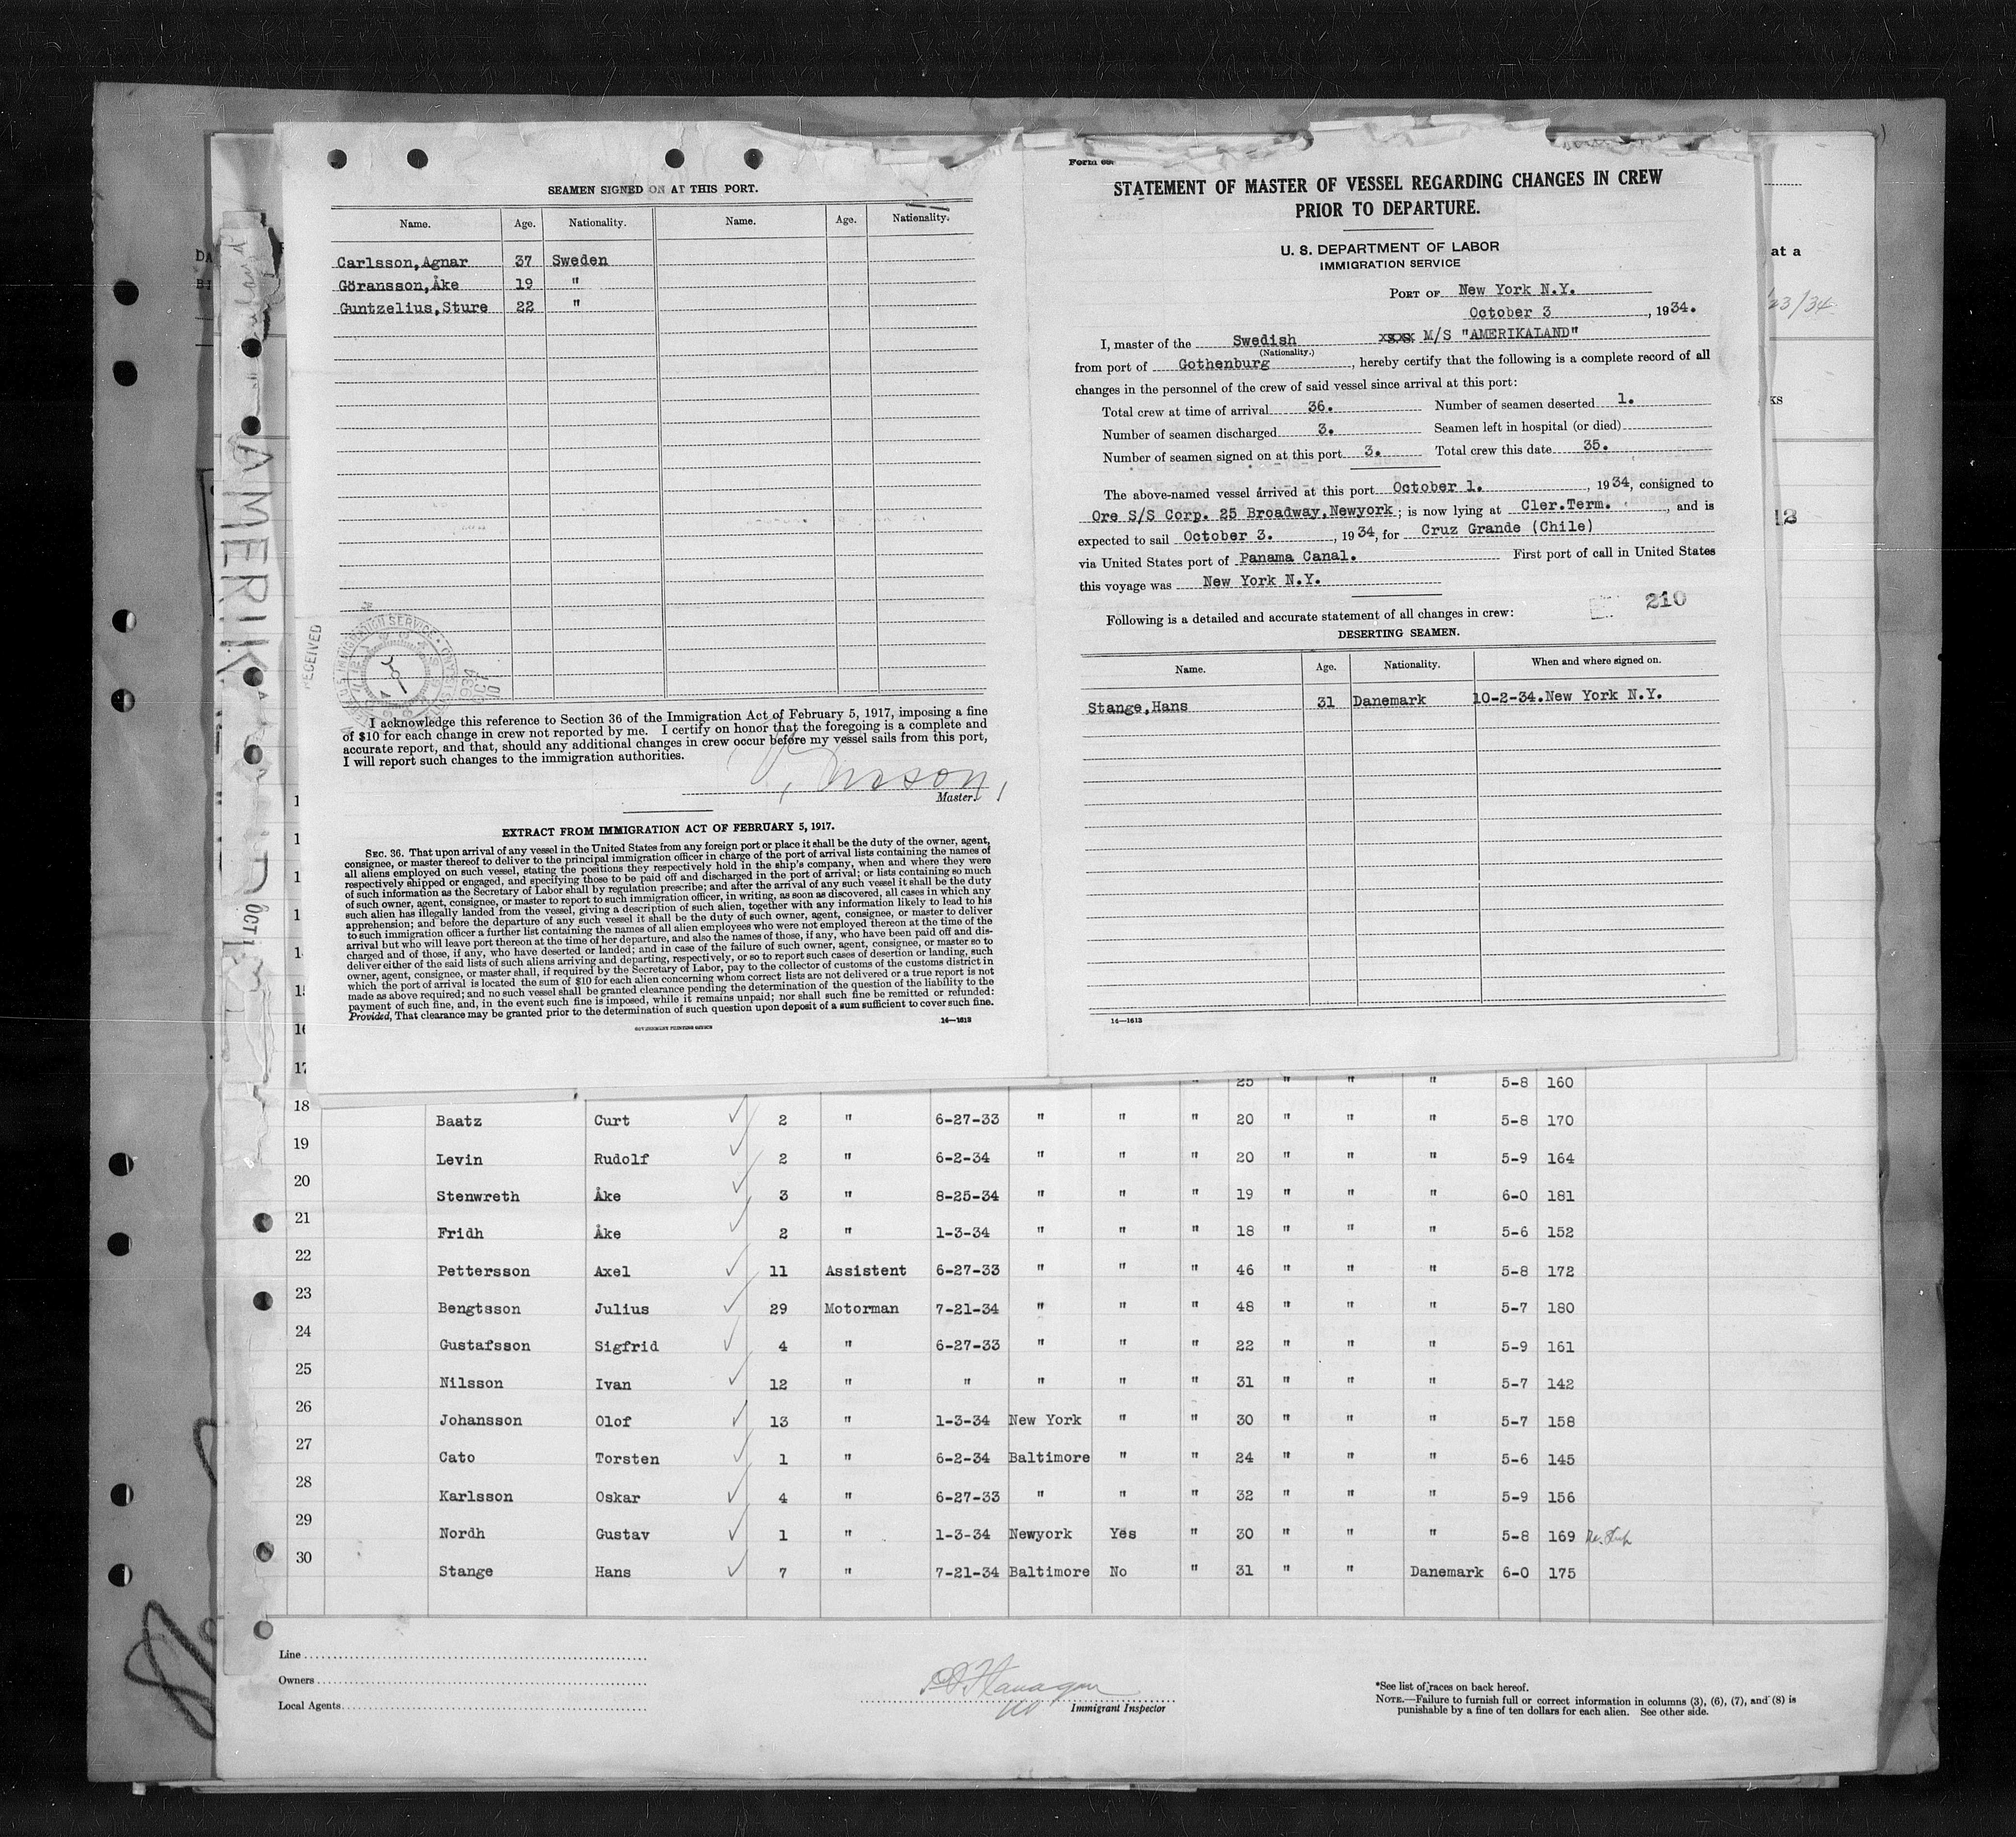 SEAMEN SIGNED ON AT THIS PORT.
Name. Age. Nationality. Name. Age. Nationality.
Carlsson,Agnar 37 Sweden
Göransson,Åke 19 "
Guntzelius,Sture 22 "
RECEIVED
I acknowledge this reference to Section 36 of the Immigration Act of February 5, 1917, imposing a fine
of $10 for each change in crew not reported by me. I certify on honor that the foregoing is a complete and
accurate report, and that, should any additional changes in crew occur before my vessel sails from this port,
I will report such changes to the immigration authorities.
Master.
EXTRACT FROM IMMIGRATION ACT OF FEBRUARY 5, 1917.
SEC. 36. That upon arrival of any vessel in the United States from any foreign port or place it shall be the duty of the owner, agent,
consignee, or master thereof to deliver to the principal immigration officer in charge of the port of arrival lists containing the names of
all aliens employed on such vessel, stating the positions they respectively hold in the ship's company, when and where they were
respectively shipped or engaged, and specifying those to be paid off and discharged in the port of arrival; or lists containing so much
of such information as the Secretary of Labor shall by regulation prescribe; and after the arrival of any such vessel it shall be the duty
of such owner, agent, consignee, or master to report to such immigration officer, in writing, as soon as discovered, all cases in which any
such alien has illegally landed from the vessel, giving a description of such alien, together with any information likely to lead to his
apprehension; and before the departure of any such vessel it shall be the duty of such owner, agent, consignee, or master to deliver
to such immigration officer a further list containing the names of all alien employees who were not employed thereon at the time of the
arrival but who will leave port thereon at the time of her departure, and also the names of those, if any, who have been paid off and dis-
charged and of those, if any, who have deserted or landed; and in case of the failure of such owner, agent, consignee, or master so to
deliver either of the said lists of such aliens arriving and departing, respectively, or so to report such cases of desertion or landing, such
owner, agent, consignee, or master shall, if required by the Secretary of Labor, pay to the collector of customs of the customs district in
which the port of arrival is located the sum of $10 for each alien concerning whom correct lists are not delivered or a true report is not
made as above required; and no such vessel shall be granted clearance pending the determination of the question of the liability to the
payment of such fine, and, in the event such fine is imposed, while it remains unpaid; nor shall such fine be remitted or refunded:
Provided, That clearance may be granted prior to the determination of such question upon deposit of a sum sufficient to cover such fine.
GOVERNMENT PRINTING OFFICE 14—1613
Form
STATEMENT OF MASTER OF VESSEL REGARDING CHANGES IN CREW
PRIOR TO DEPARTURE.
U. S. DEPARTMENT OF LABOR
IMMIGRATION SERVICE
PORT OF New York N.Y.
October 3, 1934.
I, master of the Swedish M/S "AMERIKALAND"
(Nationality.)
from port of Gothenburg, hereby certify that the following is a complete record of all
changes in the personnel of the crew of said vessel since arrival at this port:
Total crew at time of arrival 36. Number of seamen deserted 1.
Number of seamen discharged 3. Seamen left in hospital (or died)
Number of seamen signed on at this port 3. Total crew this date 35.
The above-named vessel arrived at this port October 1., 1934, consigned to
Ore S/S Corp. 25 Broadway,Newyork; is now lying at Cler.Term., and is
expected to sail October 3., 1934, for Cruz Grande (Chile)
via United States port of Panama Canal. First port of call in United States
this voyage was New York N.Y.
210
Following is a detailed and accurate statement of all changes in crew:
DESERTING SEAMEN.
Name. Age. Nationality. When and where signed on.
Stange,Hans 31 Danemark 10-2-34.New York N.Y.
14—1613
at a
23/34
ks
12
AMERIK
OCT 1
16
17 25 " " " 5-8 160
18 Baatz Curt 2 " 6-27-33 " " " 20 " " " 5-8 170
19 Levin Rudolf 2 " 6-2-34 " " " 20 " " " 5-9 164
20 Stenwreth Åke 3 " 8-25-34 " " " 19 " " " 6-0 181
21 Fridh Åke 2 " 1-3-34 " " " 18 " " " 5-6 152
22 Pettersson Axel 11 Assistent 6-27-33 " " " 46 " " " 5-8 172
23 Bengtsson Julius 29 Motorman 7-21-34 " " " 48 " " " 5-7 180
24 Gustafsson Sigfrid 4 " 6-27-33 " " " 22 " " " 5-9 161
25 Nilsson Ivan 12 " " " " " 31 " " " 5-7 142
26 Johansson Olof 13 " 1-3-34 New York " " 30 " " " 5-7 158
27 Cato Torsten 1 " 6-2-34 Baltimore " " 24 " " " 5-6 145
28 Karlsson Oskar 4 " 6-27-33 " " " 32 " " " 5-9 156
29 Nordh Gustav 1 " 1-3-34 Newyork Yes " 30 " " " 5-8 169
30 Stange Hans 7 " 7-21-34 Baltimore No " 31 " " Danemark 6-0 175
Line
Owners
Local Agents
Flanagan
Immigrant Inspector
*See list of races on back hereof.
NOTE.—Failure to furnish full or correct information in columns (3), (6), (7), and (8) is
punishable by a fine of ten dollars for each alien. See other side.